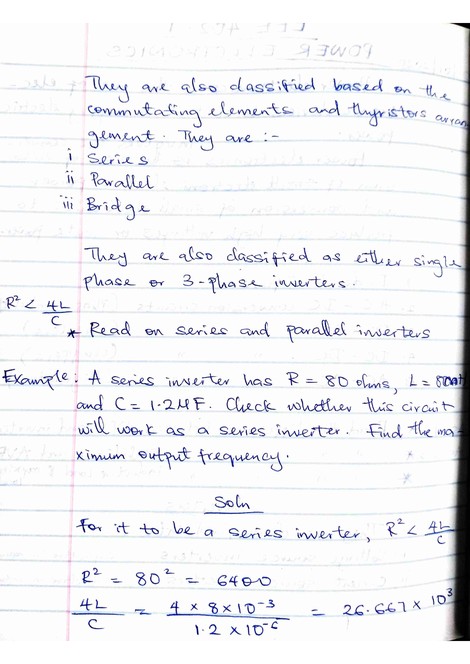 POWER ELECTRONICS
They are also classified based on the
commutating elements and thyristors arran
gement. They are :-
i Series
ii Parallel
iii Bridge
They are also classified as either single
phase or 3-phase inverters.
R² < 4L/C
* Read on series and parallel inverters
Example: A series inverter has R = 80 ohms, L =
and C = 1.2MF. Check whether this circuit
will work as a series inverter. Find the ma-
ximum output frequency.
Soln
For it to be a series inverter, R² < 4L/C
R² = 80² = 6400
4L/C = 4 × 8×10⁻³ / 1.2 × 10⁻⁶ = 26.667 × 10³